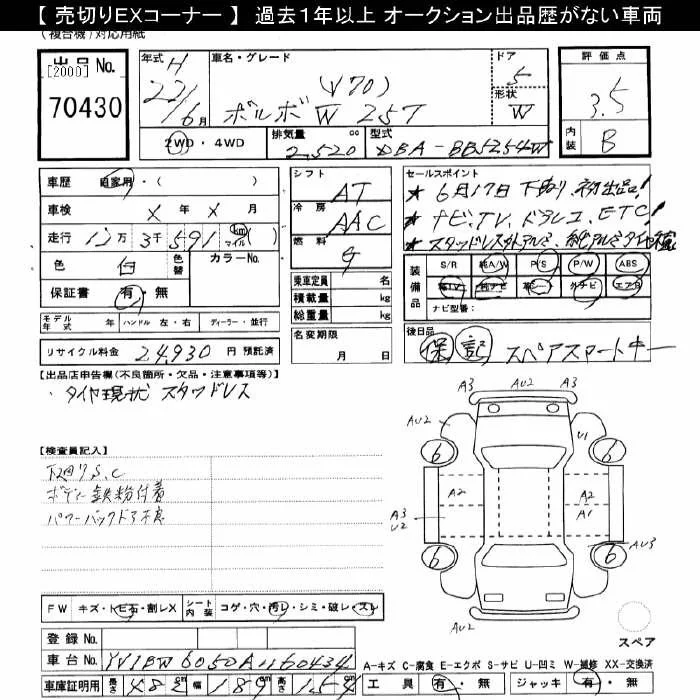 【 売切りEXコーナー 】 過去1年以上 オークション出品歴がない車両
(複合機)対応用紙
出品 No.
[2000]
70430
年式 H
22/6月
車名・グレード
(V70)
ボルボ W 25T
ドア
5
形状
W
評価点
3.5
内装
B
2WD・4WD
排気量 cc
2.520
型式
DBA-BB5254W
車歴 自家用・(
車検 X 年 X 月
走行 12万 3千 591 km マイル ( )
色 白 色替
カラーNo.
保証書 有・無
シフト
AT
冷房
AAC
燃料
G
乗車定員 名
積載量 kg
総重量 kg
名変期限
月 日
セールスポイント
★ 6月17日 下取り、初出品!
★ ナビ、TV、ドラレコ、ETC!
装備品
S/R 純A/W P/S P/W ABS
純TV 純ナビ 革シート 外ナビ エアB
ナビ型番:
モデル年式 年 ハンドル 左・右 ディーラー・並行
リサイクル料金 24,930 円 預託済
後日品
保 記 スペアスマートキー
【出品店申告欄(不良箇所・欠品・注意事項等)】
・タイヤ現状 スタッドレス
【検査員記入】
下廻りS、C
ボディー鉄粉付着
パワーバックドア不良
A3 AU2 A3
AU2
U1
6 6
A2 A2
A3 A1
U2
AU3
6 6
AU2
スペア
FW キズ・トビ石・割レX シート内装 コゲ・穴・汚レ・シミ・破レ・スレ
登録 No.
車台 No. YV1BW6050A1160434
車庫証明用 長さ 482 cm 幅 189 cm 高さ 154
A-キズ C-腐食 E-エクボ S-サビ U-凹ミ W-補修 XX-交換済
工具 有・無 ジャッキ 有・無